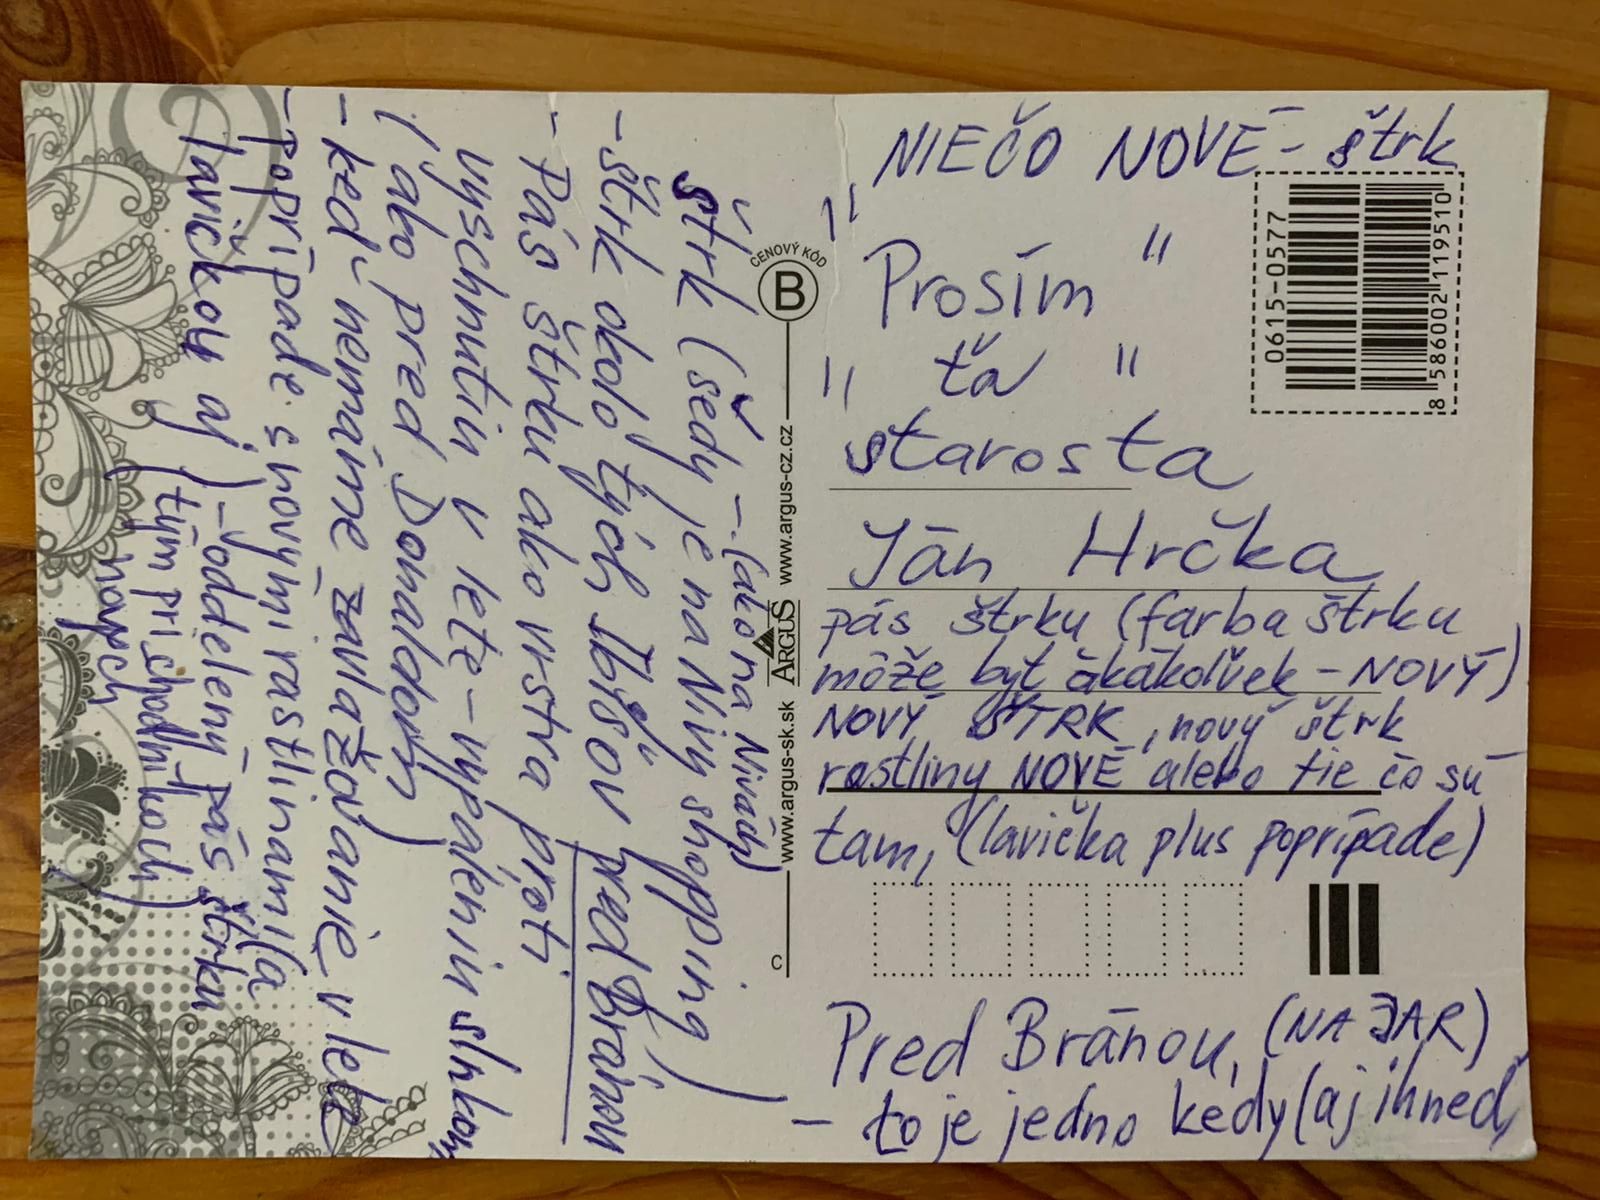 NIEČO NOVÉ - štrk
" Prosím "
" ťa "
starosta
Ján Hrčka
pás štrku (farba štrku
môže byť ákákolivek - NOVÝ)
NOVÝ ŠTRK, nový štrk
rastliny NOVÉ alebo tie čo sú
tam, (lavička plus poprípade)
Pred Bránou, (NA JAR)
- to je jedno kedy (aj ihneď)
0615-0577
8 586002 119510
CENOVÝ KÓD
B
www.argus-sk.sk ARGUS www.argus-cz.cz
C
- (ako na Nivách)
štrk (šedý je na Nivy shopping)
- štrk okolo tých Ibišov pred Bránou
- Pás štrku ako vrstva proti
vyschnutiu v lete - vypáleniu slnkom
(ako pred Donaldom)
- keď nemáme zavlažovanie v lete
- poprípade s novými rastlinami
lavičkou aj
- oddelený pás štrku
(tým pri chodníkoch)